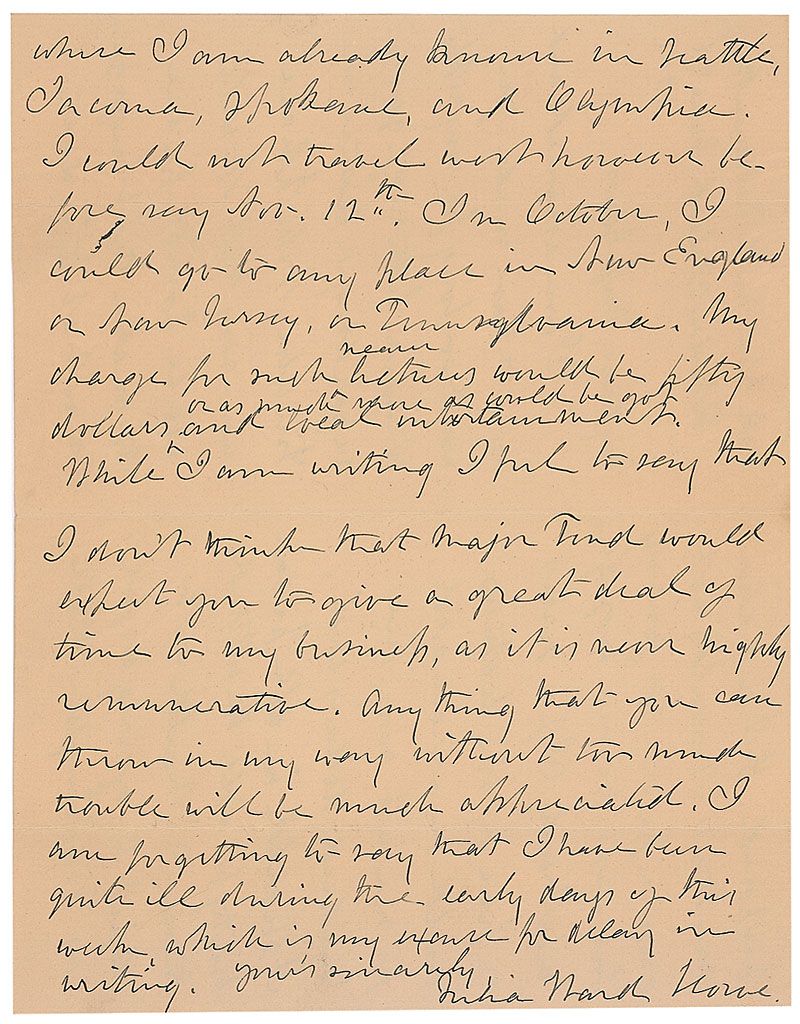 where I am already known in Seattle,
Tacoma, Spokane, and Olympia.
I could not travel west however be-
fore, say Nov. 12th. In October, I
could go to any place in New England
or New Jersey, or Pennsylvania. My
nearer
charge for such lectures would be fifty
or as much more as could be got
dollars and local entertainment.
While I am writing I feel to say that
I don't think that Major Pond would
expect you to give a great deal of
time to my business, as it is never highly
remunerative. Anything that you can
throw in my way without too much
trouble will be much appreciated. I
am forgetting to say that I have been
quite ill during the early days of this
week, which is my excuse for delay in
writing. yours sincerely,
Julia Ward Howe.